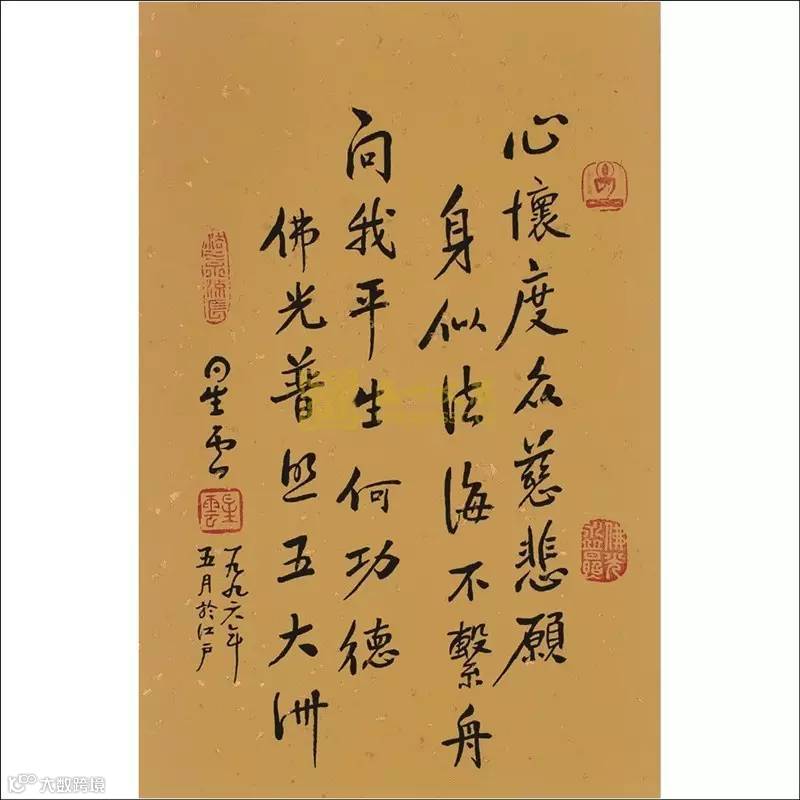 心懷度众慈悲願
身似法海不繫舟
问我平生何功德
佛光普照五大洲
星雲
星雲
一九九六年
五月於江戶
大数跨境